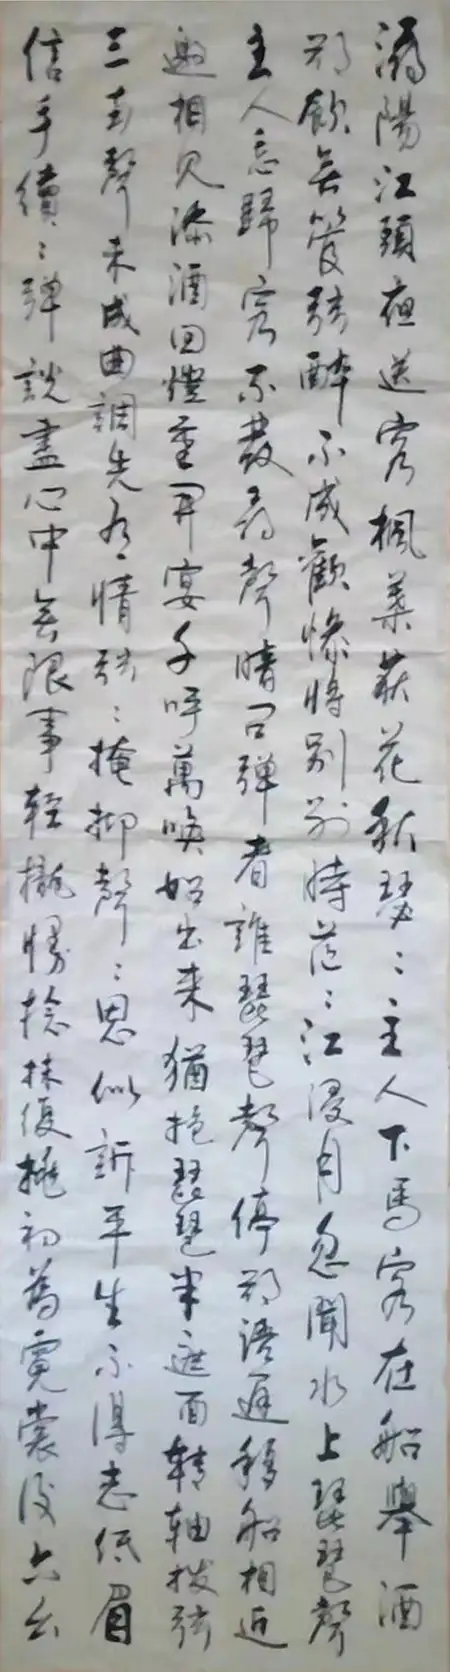 潯陽江頭夜送客楓葉荻花秋瑟〻主人下馬客在船舉酒
欲飲無管弦醉不成歡慘將別別時茫〻江浸月忽聞水上琵琶聲
主人忘歸客不發尋聲暗问弹者誰琵琶聲停欲語遲移船相近
邀相见添酒回燈重开宴千呼萬喚始出来猶抱琵琶半遮面转轴拨弦
三兩聲未成曲調先有情弦〻掩抑聲〻思似訴平生不得志低眉
信手續〻弹説盡心中無限事轻攏慢捻抹復挑初為霓裳後六幺